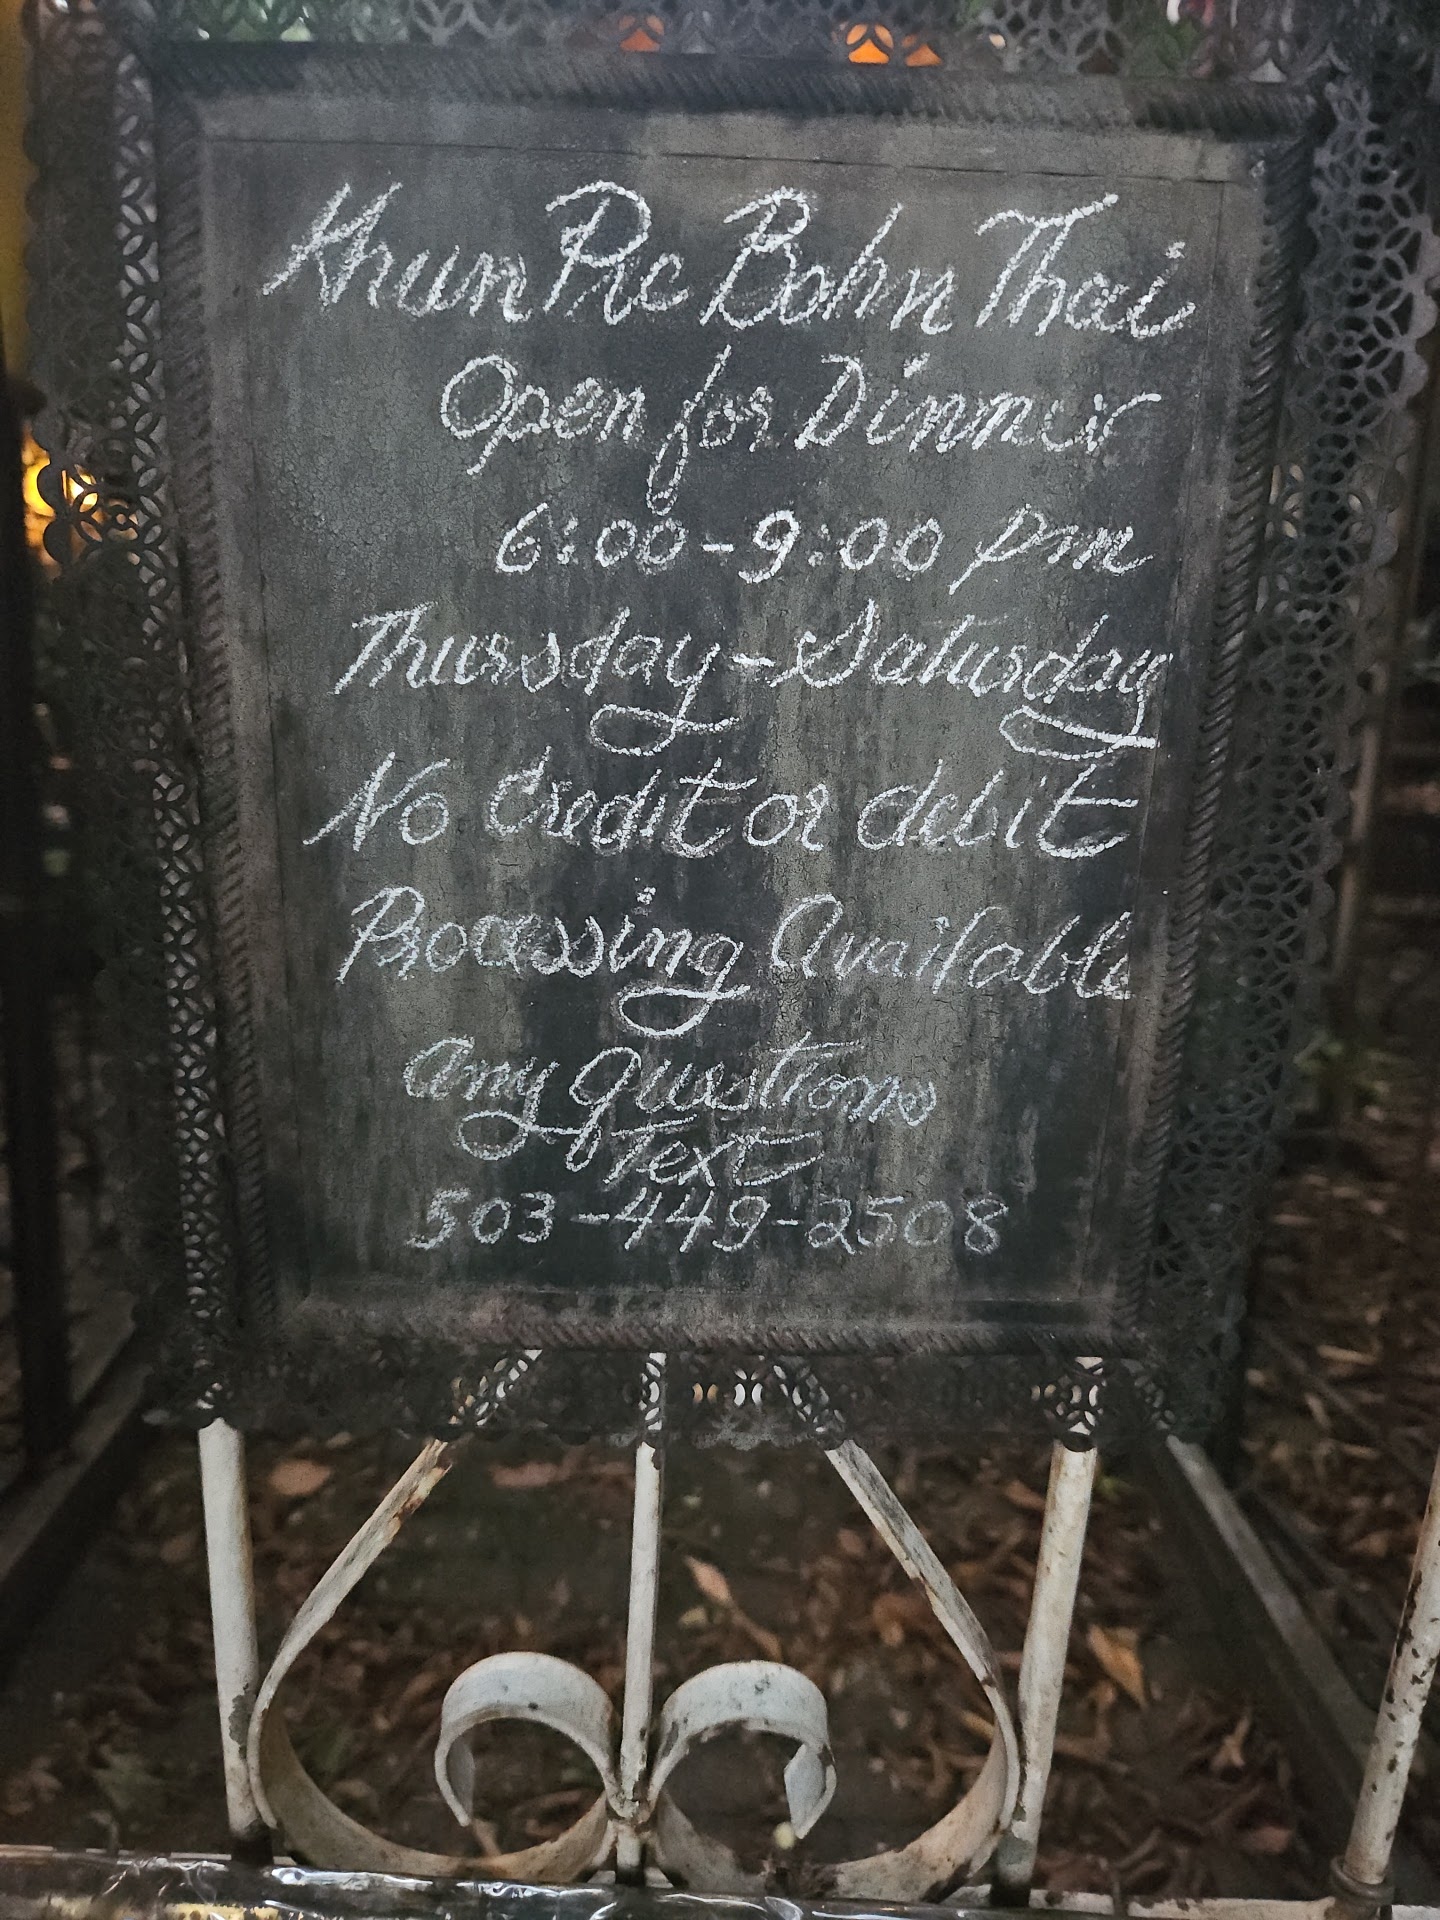 Khun Pic Bahn Thai
Open for Dinner
6:00-9:00 pm
Thursday-Saturday
No Credit or debit
Processing Available
any questions
Text
503-449-2508